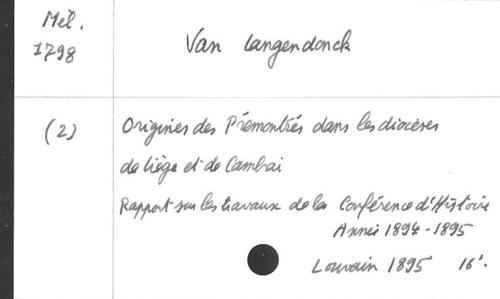 Mél.
1798
Van Langendonck
(2)
Origines des Prémontrés dans les diocèses
de Liège et de Cambrai
Rapport sur les travaux de la Conférence d'Histoire
Année 1894-1895
Louvain 1895 16°.